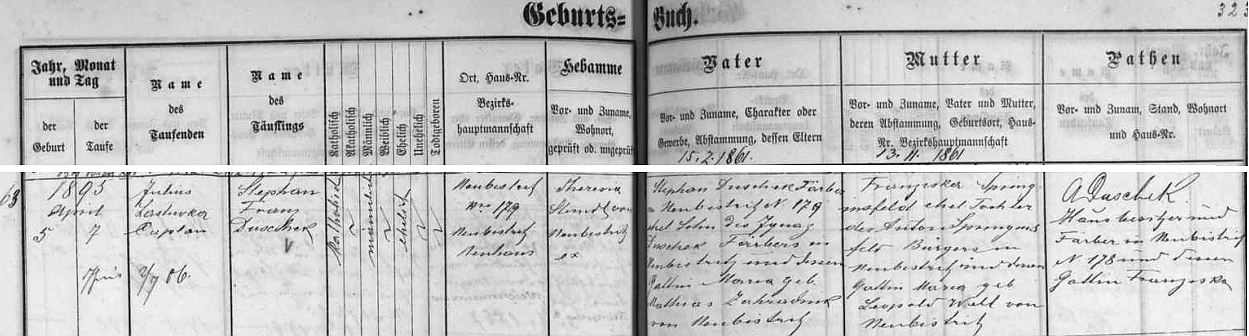 Geburts= Buch. 323
Jahr, Monat und Tag
der Geburt
der Taufe
Name des Taufenden
Name des Täuflings
Katholisch
Akatholisch
Männlich
Weiblich
Ehelich
Unehelich
Todtgeboren
Ort, Haus-Nr.
Bezirks-
hauptmannschaft
Hebamme
Vor- und Zuname,
Wohnort,
geprüft od. ungeprüft
Vater
Vor- und Zuname, Charakter oder
Gewerbe, Abstammung, dessen Eltern
15.2.1861.
Mutter
Vor- und Zuname, Vater und Mutter,
deren Abstammung, Geburtsort, Haus-
Nr. Bezirkshauptmannschaft
13. 11. 1861
Pathen
Vor- und Zunam, Stand, Wohnort
und Haus-Nr.
63
1895
April
5 7
Julius
Caplan
Stephan
Franz
Duschek
katholisch
männlich
ehelich
Neubistritz
Nro 179
Neubistritz
Neuhaus
Theresia
Neubistritz
ex
Stephan Duschek Färber
in Neubistritz N 179
ehel Sohn des Ignaz
Duschek Färbers in
Neubistritz und dessen
Gattin Maria geb
Mathias Zahradnik
von Neubistritz
Franziska Spring
insfeld ehel Tochter
des Anton Springins
feld Bürgers in
Neubistritz und dessen
Gattin Maria geb
Leopold Well von
Neubistritz
A Duschek
Hausbesitzer und
Färber in Neubistritz
N 178 und dessen
Gattin Franziska